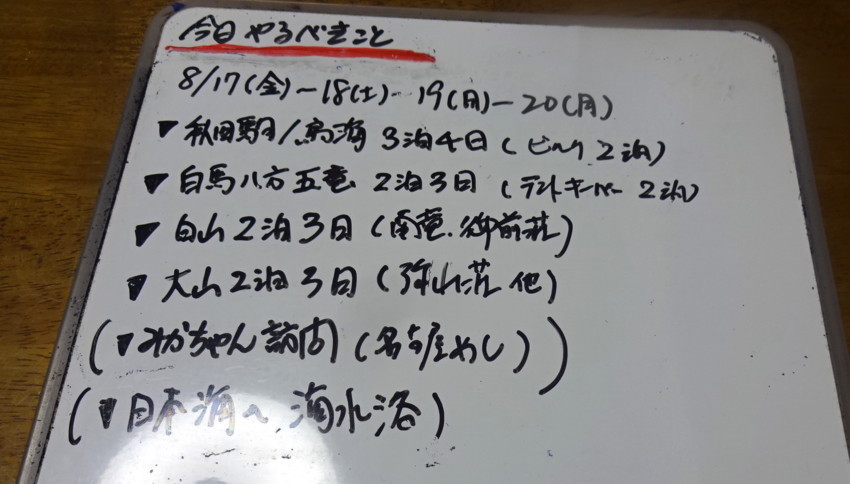 今日やるべきこと
8/17(金)～18(土)-19(月)-20(月)
▼秋田駒/鳥海 3泊4日(ビバーク 2泊)
▼白馬八方五竜 2泊3日 (テントキーパー 2泊)
▼白山2泊3日(南竜.御前荘)
▼大山2泊3日(弥山荘 他)
(▼みかちゃん訪問(名古屋めし))
(▼日本海へ 海水浴)